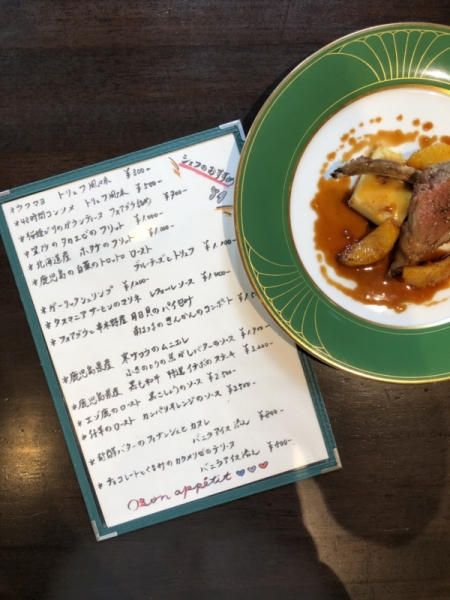 シェフのおすすめ
* ウフマヨ トリュフ風味 ¥300-
* 48時間コンソメ トリュフ風味 ¥500-
フォアグラ ¥700-
フリット ¥1,000-
* 北海道産 ホタテのフリット ¥1,000-
* 鹿児島の白菜のトロトロロースト
ブルーチーズとトリュフ ¥1,000-
* ガーリックシュリンプ ¥1,200-
* タスマニアサーモンのミキュイ レフォールソース ¥1,400-
* フォアグラと 貝のパイ包み
きんかんのコンポート
* 鹿児島県産 寒サワラのムニエル
ふきのとうの焦がしバターのソース ¥1,900-
* 鹿児島県産 黒毛和牛 イチボのステーキ ¥2,200-
* エゾ鹿のロースト 黒こしょうのソース ¥2,500-
* 仔羊のロースト カンパリオレンジのソース ¥2,500-
* 発酵バターのフィナンシェとカヌレ
バニラアイス添え ¥800-
* チョコレートとくるみのカラメリゼのテリーヌ
バニラアイス添え ¥800-
Bon appétit